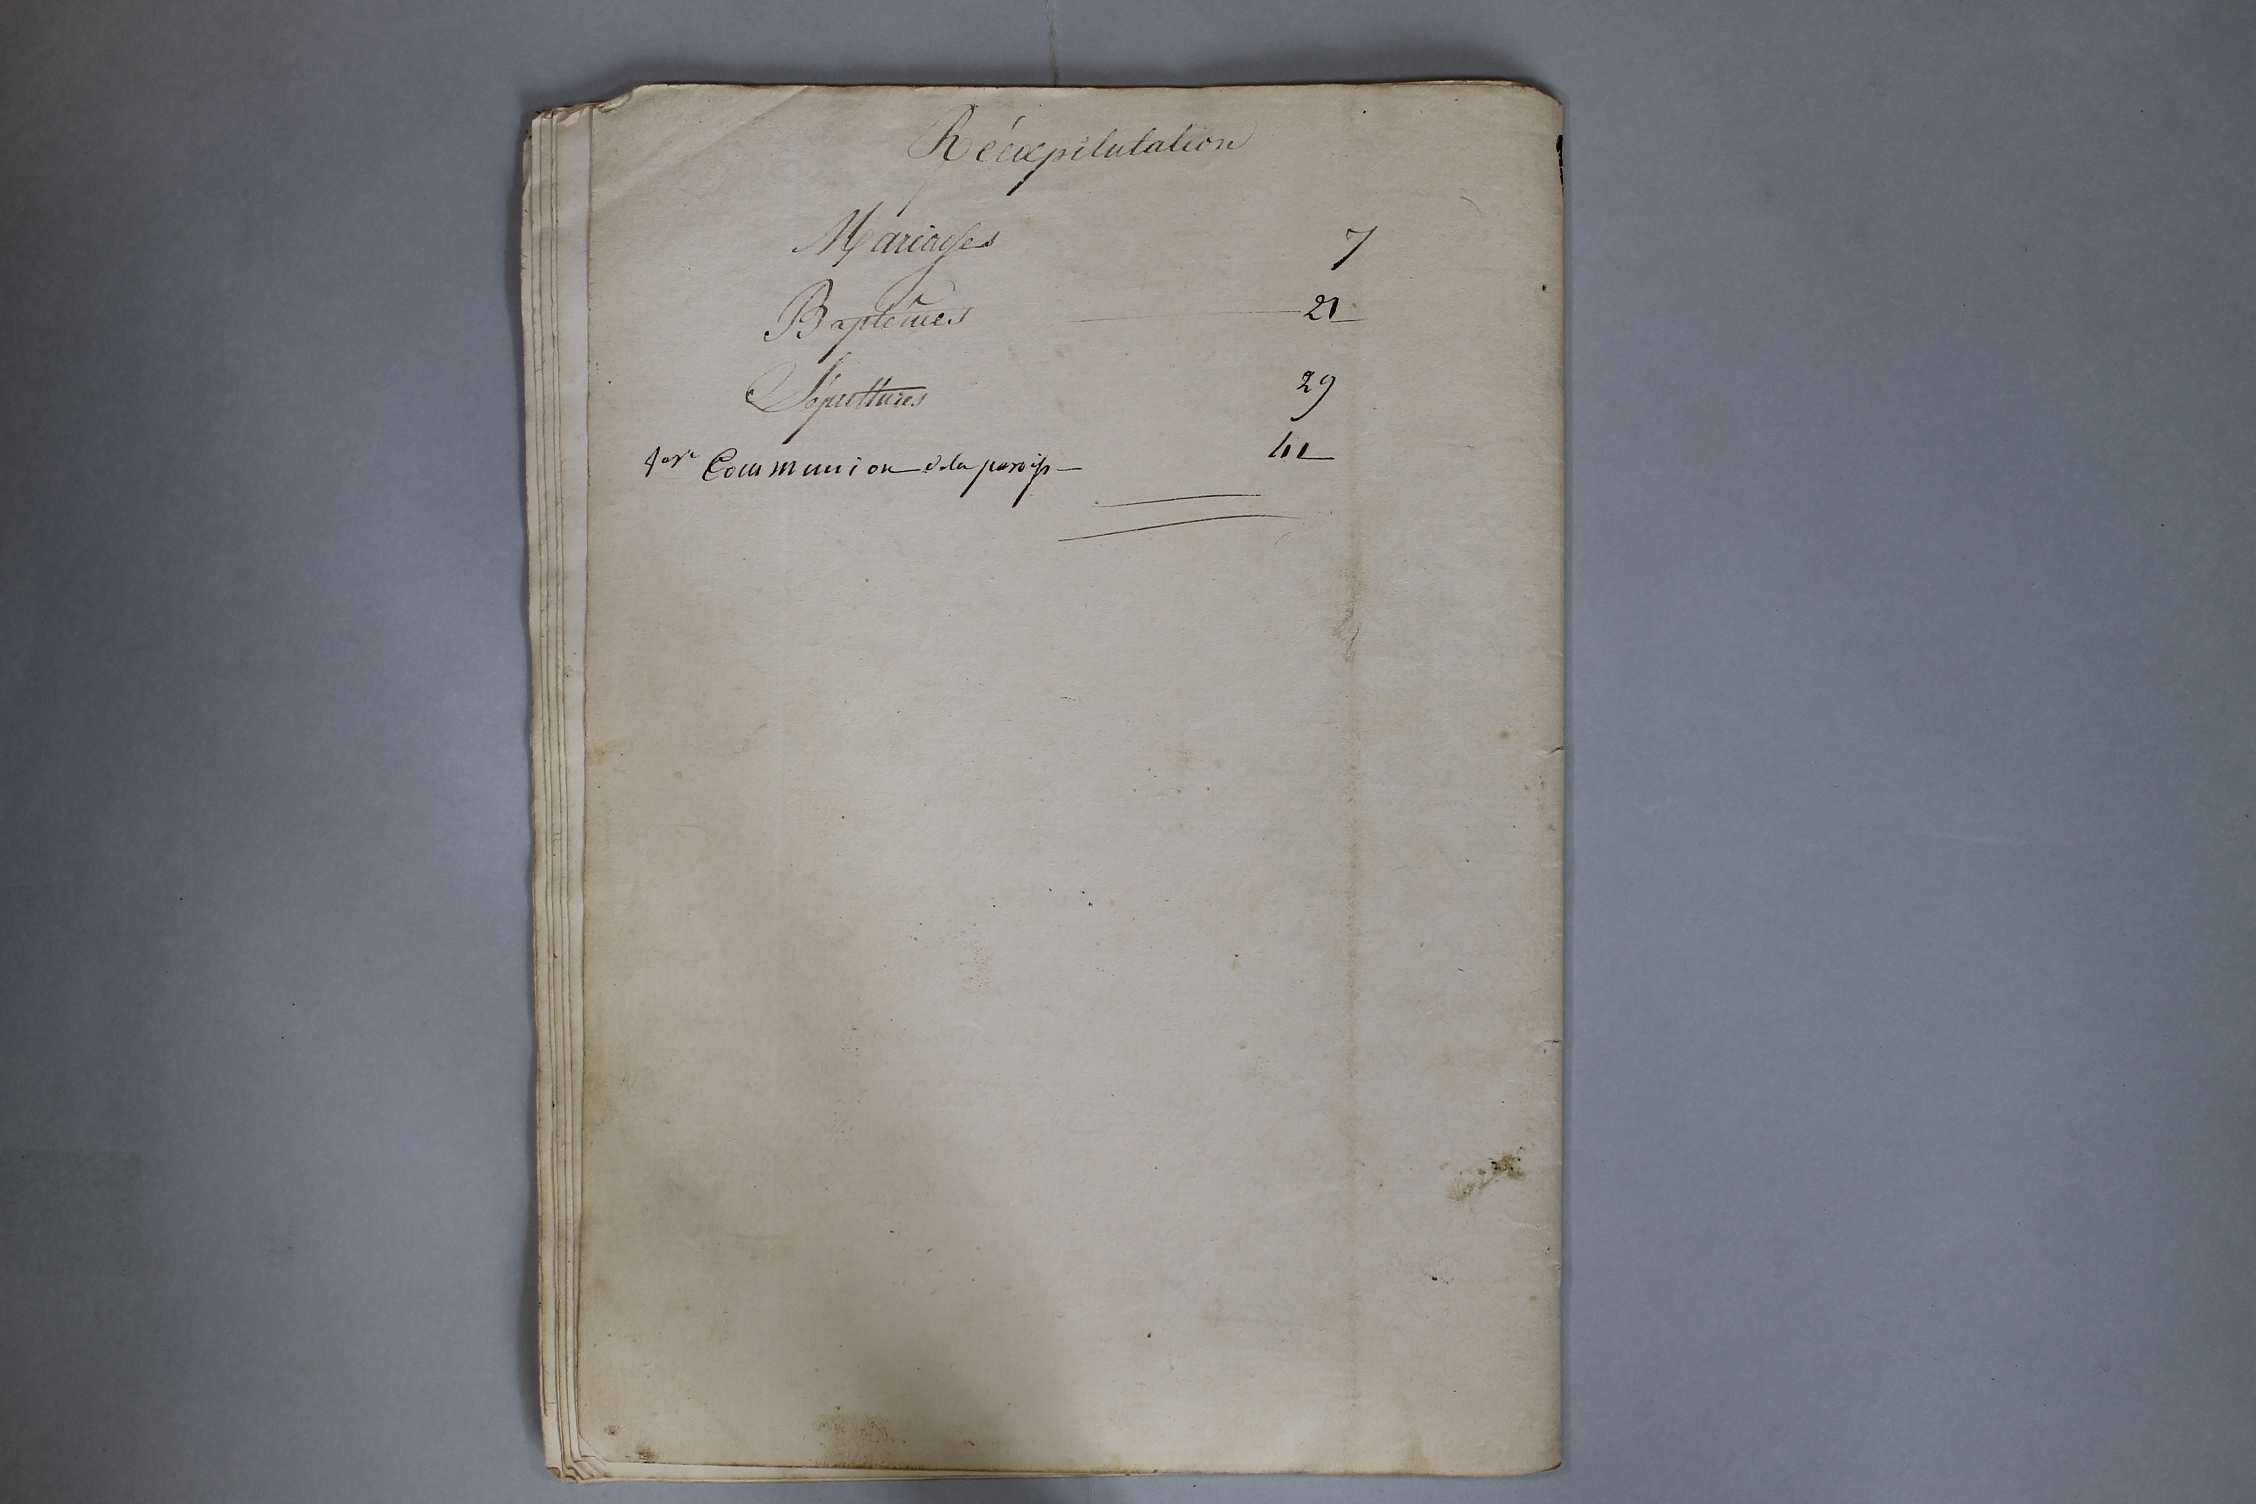 Récapitulation
Mariages 7
Baptêmes 21
Sépultures 29
Communion de la paroiss